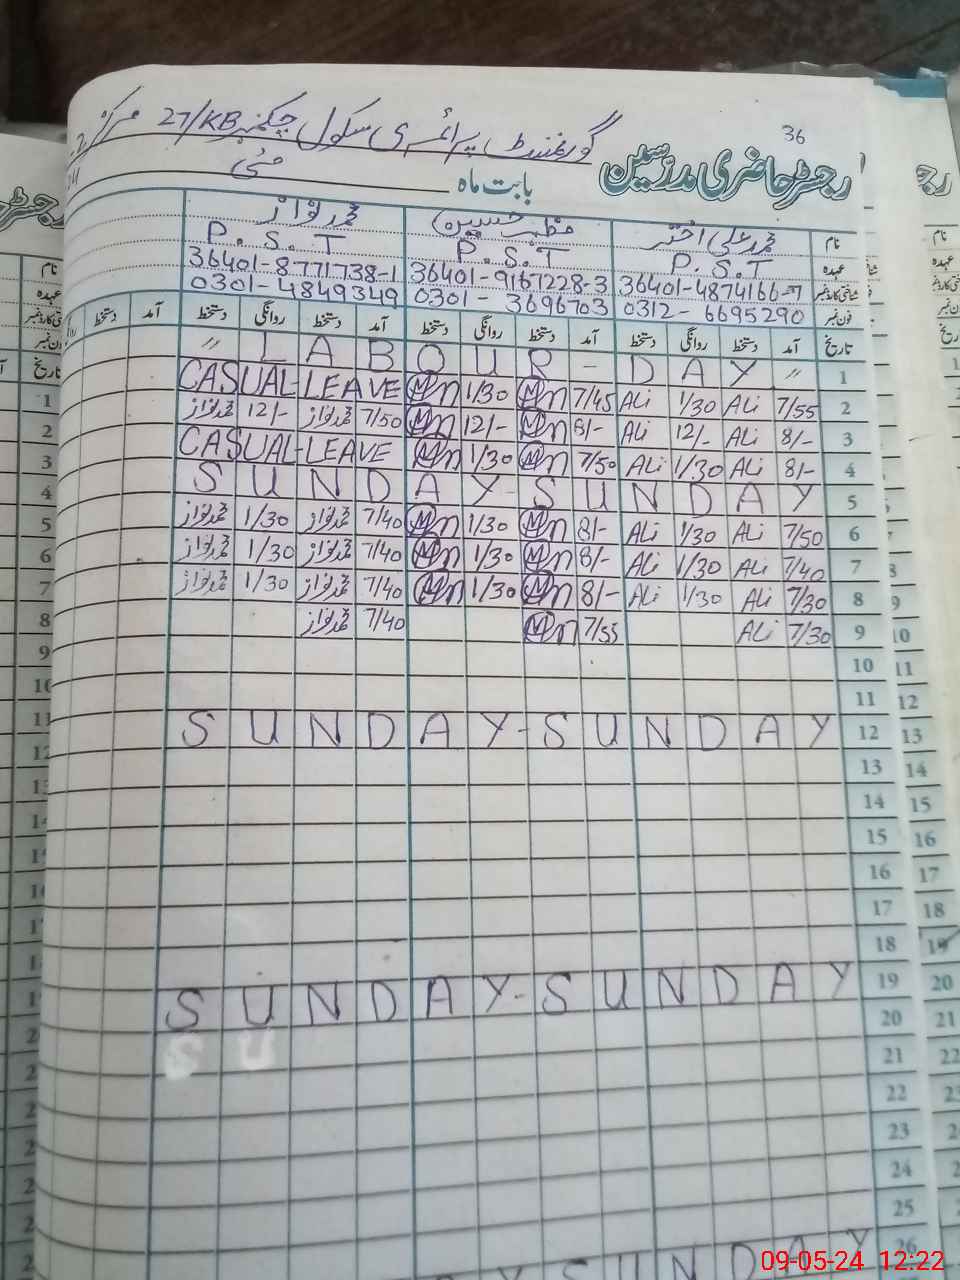 36
گورنمنٹ پرائمری سکول چکنمبر 27/KB مرکز
رجسٹر حاضری مدرسین
بابت ماہ مئی
نام محمد علی اختر مظہر حسین محمد نواز
عہدہ P.S.T P.S.T P.S.T
شناختی کارڈ نمبر 36401-4874166-7 36401-9167228-3 36401-8771738-1
فون نمبر 0312-6695290 0301-3696703 0301-4849349
تاریخ آمد دستخط روانگی دستخط آمد دستخط روانگی دستخط آمد دستخط روانگی دستخط آمد دستخط
" LABOUR - DAY " 1
CASUAL-LEAVE Mn 1/30 Mn 7/45 ALi 1/30 ALi 7/55 2
محمد نواز 12/- محمد نواز 7/50 Mn 12/- Mn 8/- ALi 12/- ALi 8/- 3
CASUAL-LEAVE Mn 1/30 Mn 7/50 ALi 1/30 ALi 8/- 4
SUNDAY-SUNDAY 5
محمد نواز 1/30 محمد نواز 7/40 Mn 1/30 Mn 8/- ALi 1/30 ALi 7/50 6
محمد نواز 1/30 محمد نواز 7/40 Mn 1/30 Mn 8/- ALi 1/30 ALi 7/40 7
محمد نواز 1/30 محمد نواز 7/40 Mn 1/30 Mn 8/- ALi 1/30 ALi 7/30 8
محمد نواز 7/40 Mn 7/55 ALi 7/30 9
10
11
SUNDAY-SUNDAY 12
13
14
15
16
17
18
SUNDAY-SUNDAY 19
20
S U 21
22
23
24
25
Y SUNDAY 26
09-05-24 12:22